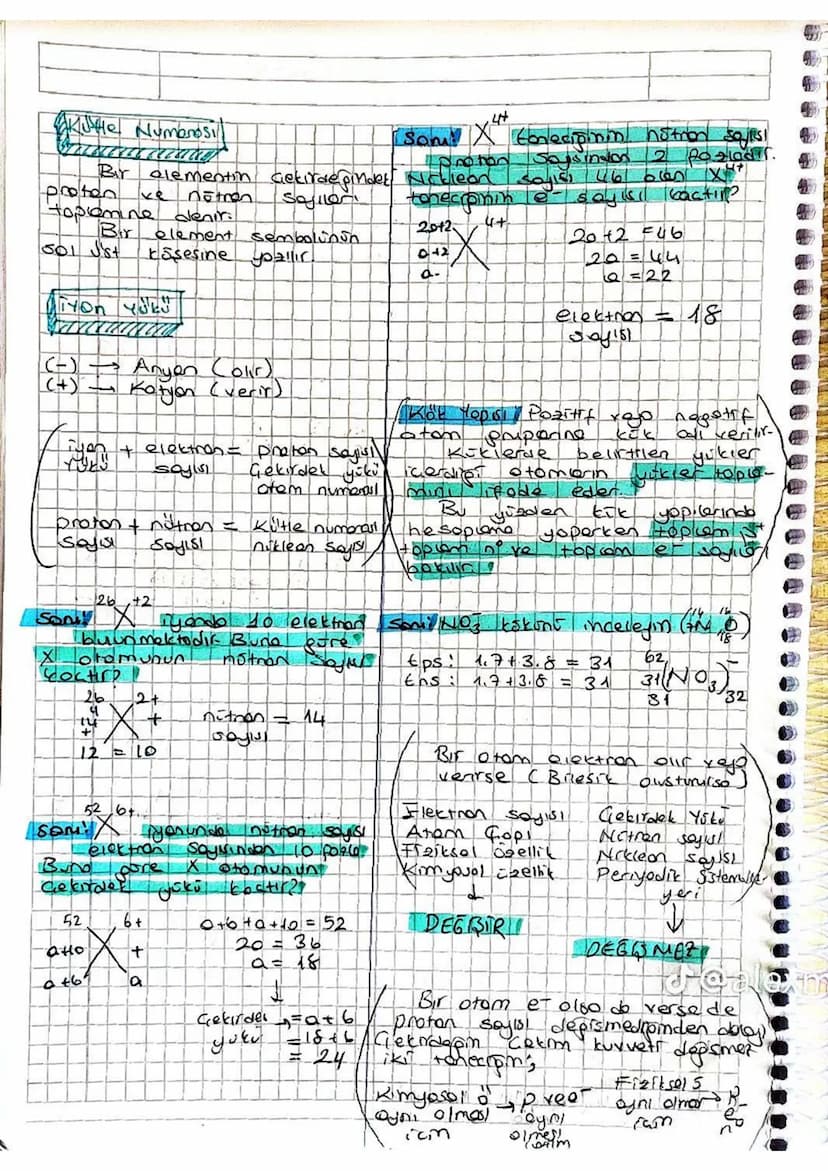 Kütle Numarası
Bir elementin çekirdeğindeki
proton ve nötron sayıları
toplamına denir.
Bir element sembolünün
sol üst köşesine yazılır.
İyon Yükü
(-) → Anyon (alır)
(+) → Katyon (verir)
iyon yükü + elektron sayısı = proton sayısı
Çekirdek yükü
atom numarası
proton sayısı + nötron sayısı = Kütle numarası
nükleon sayısı
Soru! 26 X +2 iyonda 10 elektron
bulunmaktadır. Buna göre
X atomunun nötron sayısı
kaçtır?
26 X 2+
14
+
12 = 10
nötron = 14
sayısı
Soru! 52 X 6+ iyonunda nötron sayısı
elektron sayısından 10 fazla
Buna göre X atomunun
Çekirdek yükü kaçtır?
52 X 6+
a+10 +
a+6 a
a+6+a+10 = 52
2a = 36
a = 18
↓
Çekirdek → = a+6
yükü = 18+6
= 24
Soru! X 4+ taneciğinin nötron sayısı
proton sayısından 2 fazladır.
Nükleon sayısı 46 olan X 4+
taneciğinin e- sayısı kaçtır?
2a+2 X 4+
a+2
a
2a+2 = 46
2a = 44
a = 22
elektron = 18
sayısı
Kök Yapısı Pozitif veya negatif
atom gruplarına kök adı verilir.
Köklerde belirtilen yükler
içerdiği atomların yükler topla-
mını ifade eder.
Bu yüzden kök yapılarında
hesaplama yaparken toplam p+
toplam n° ve toplam e- sayıları
bakılır.
Soru! NO3- kökünü inceleyin (14 7 N 16 8 O)
tps: 1.7+3.8 = 31
tns: 1.7+3.8 = 31
62
31 (NO3)-
31 32
Bir atom elektron alır veya
verirse (Bileşik oluşturulsa)
Elektron sayısı
Atom Çapı
Fiziksel özellik
Kimyasal özellik
↓
DEĞİŞİR
Çekirdek Yükü
Nötron sayısı
Nükleon sayısı
Periyodik sistemde
yeri
↓
DEĞİŞMEZ
@alexm
Bir atom e- alsa da verse de
proton sayısı değişmediğinden dolayı
Çekirdeğin Çekim kuvveti değişmez
iki taneciğin;
Kimyasal Ö → p ve e-
aynı olması aynı
için olması lazım
Fiziksel Ö → p
aynı olmar e-
için n°